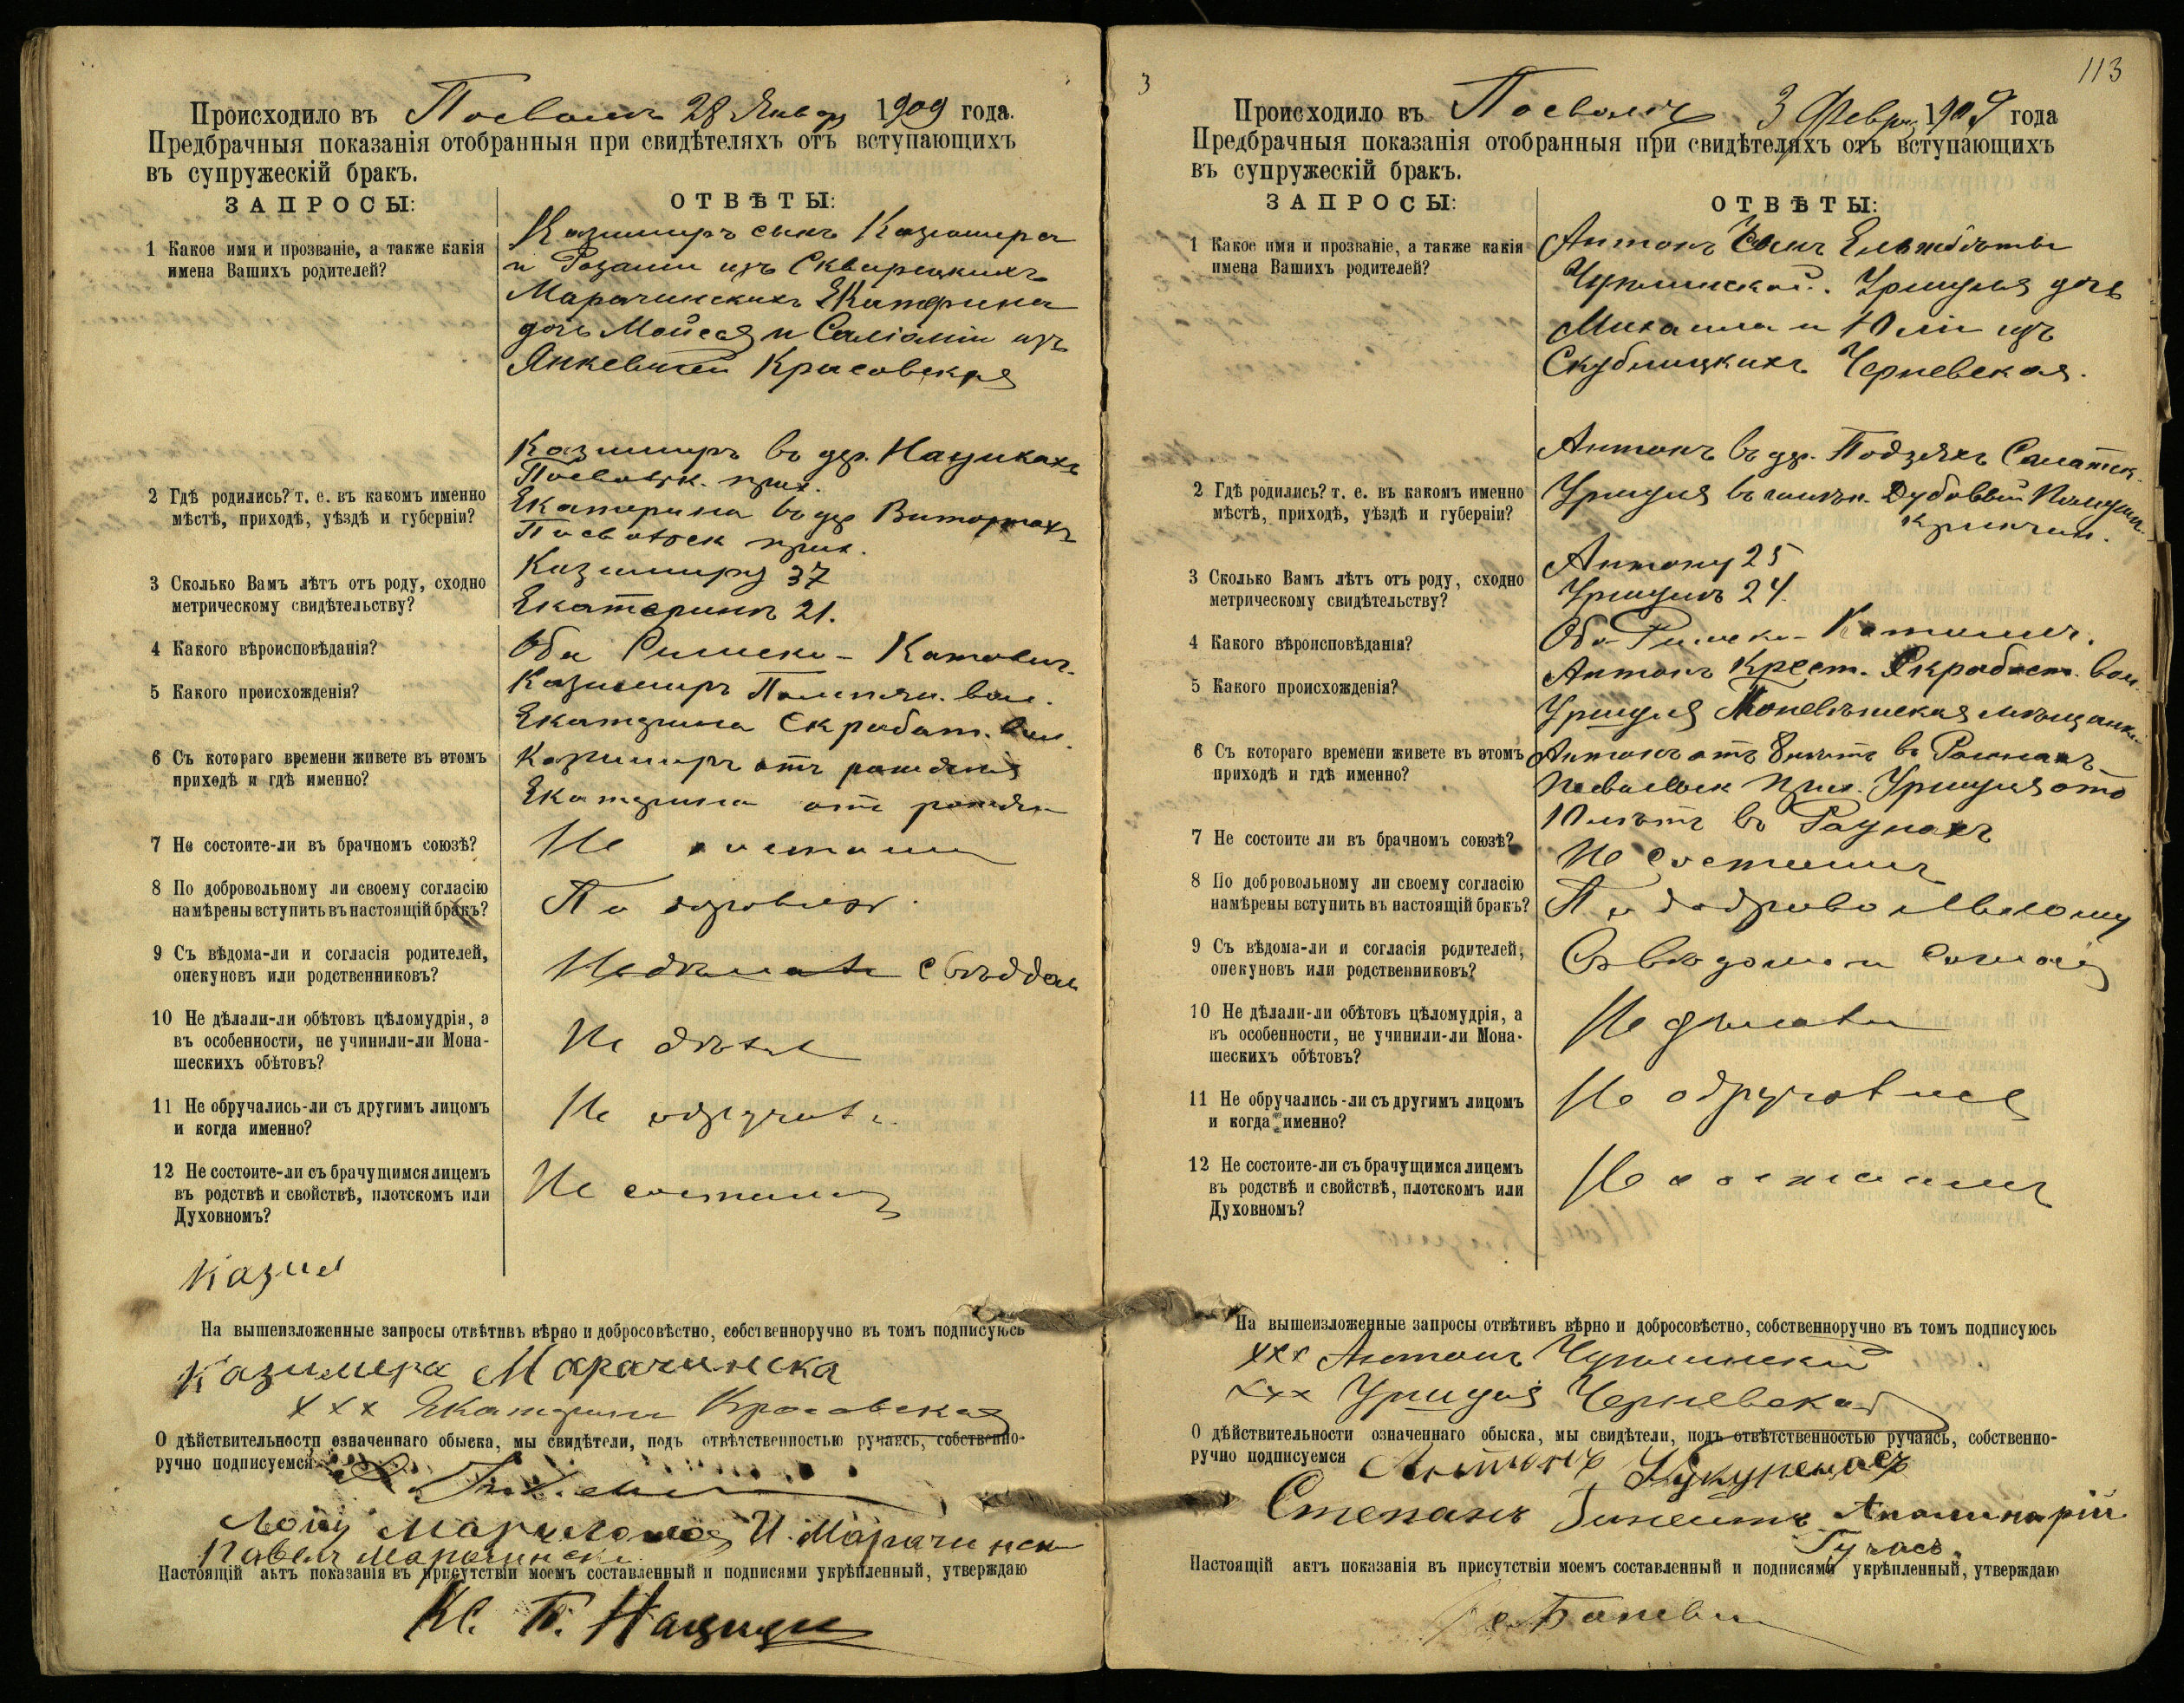 Происходило въ Посволѣ 28 Январ 1909 года.
Предбрачныя показанія отобранныя при свидѣтеляхъ отъ вступающихъ
въ супружескій бракъ.
ЗАПРОСЫ:
ОТВѢТЫ:
1 Какое имя и прозваніе, а также какія
имена Вашихъ родителей?
Казимиръ сынъ Казимира
и Розаліи изъ Скварецкихъ
Марачинскихъ Екатерина
дочь Мойсея и Саломіи изъ
Янкевичей Красовская
2 Гдѣ родились? т. е. въ какомъ именно
мѣстѣ, приходѣ, уѣздѣ и губерніи?
Казимиръ въ дер. Нацишкахъ
Посвольск. прих.
Екатерина въ дер
Посвольск прих.
3 Сколько Вамъ лѣтъ отъ роду, сходно
метрическому свидѣтельству?
Казимиру 37
Екатеринѣ 21.
4 Какого вѣроисповѣданія?
Оба Римско-Католич.
5 Какого происхожденія?
Казимиръ вол.
Екатерина Скрабат. вол.
6 Съ котораго времени живете въ этомъ
приходѣ и гдѣ именно?
Казимиръ отъ рожденія
Екатерина отъ рожден
7 Не состоите-ли въ брачномъ союзѣ?
Не состоимъ
8 По добровольному ли своему согласію
намѣрены вступить въ настоящій бракъ?
По
9 Съ вѣдома-ли и согласія родителей,
опекуновъ или родственниковъ?
10 Не дѣлали-ли обѣтовъ цѣломудрія, а
въ особенности, не учинили-ли Мона-
шескихъ обѣтовъ?
Не дѣлал
11 Не обручались-ли съ другимъ лицомъ
и когда именно?
Не обручал
12 Не состоите-ли съ брачущимся лицемъ
въ родствѣ и свойствѣ, плотскомъ или
Духовномъ?
Не состоимъ
Казим
На вышеизложенные запросы отвѣтивъ вѣрно и добросовѣстно, собственноручно въ томъ подписуюсь
Казимера Марачинска
ххх Екатерина Красовская
О дѣйствительности означеннаго обыска, мы свидѣтели, подъ отвѣтственностью ручаясь, собственно-
ручно подписуемся
И. Марачинск
Павелъ Марачински
Настоящій актъ показанія въ присутствіи моемъ составленный и подписями укрѣпленный, утверждаю
Кс.
3
113
Происходило въ Посволѣ 3 Февр. 1909 года
Предбрачныя показанія отобранныя при свидѣтеляхъ отъ вступающихъ
въ супружескій бракъ.
ЗАПРОСЫ:
ОТВѢТЫ:
1 Какое имя и прозваніе, а также какія
имена Вашихъ родителей?
Антонъ Сынъ Ельжбѣты
Чуплинской. Уршуля дочь
Михаила и Юліи изъ
Скублицкихъ Черневская.
2 Гдѣ родились? т. е. въ какомъ именно
мѣстѣ, приходѣ, уѣздѣ и губерніи?
Антонъ въ др. Подзяхъ Салатск.
Уршуля въ
3 Сколько Вамъ лѣтъ отъ роду, сходно
метрическому свидѣтельству?
Антону 25
Уршулѣ 24.
4 Какого вѣроисповѣданія?
Оба Римско-Католич.
5 Какого происхожденія?
Антонъ Крест. Скрабост. вол.
Уршуля Поневѣжская мѣщанка
6 Съ котораго времени живете въ этомъ
приходѣ и гдѣ именно?
Антонъ отъ 8 лѣтъ въ
Посвольск прих. Уршуля отъ
10 лѣтъ въ
7 Не состоите ли въ брачномъ союзѣ?
Не состоимъ
8 По добровольному ли своему согласію
намѣрены вступить въ настоящій бракъ?
По добровольному
9 Съ вѣдома-ли и согласія родителей,
опекуновъ или родственниковъ?
Съ вѣдома и согласія
10 Не дѣлали-ли обѣтовъ цѣломудрія, а
въ особенности, не учинили-ли Мона-
шескихъ обѣтовъ?
Не дѣлали
11 Не обручались-ли съ другимъ лицомъ
и когда именно?
Не обручались
12 Не состоите-ли съ брачущимся лицемъ
въ родствѣ и свойствѣ, плотскомъ или
Духовномъ?
Не состоимъ
На вышеизложенные запросы отвѣтивъ вѣрно и добросовѣстно, собственноручно въ томъ подписуюсь
ххх Антонъ Чуплинскій
ххх Уршуля Черневская
О дѣйствительности означеннаго обыска, мы свидѣтели, подъ отвѣтственностью ручаясь, собственно-
ручно подписуемся Антонъ Кукуренасъ
Степанъ Аполинарій
Настоящій актъ показанія въ присутствіи моемъ составленный и подписями укрѣпленный, утверждаю